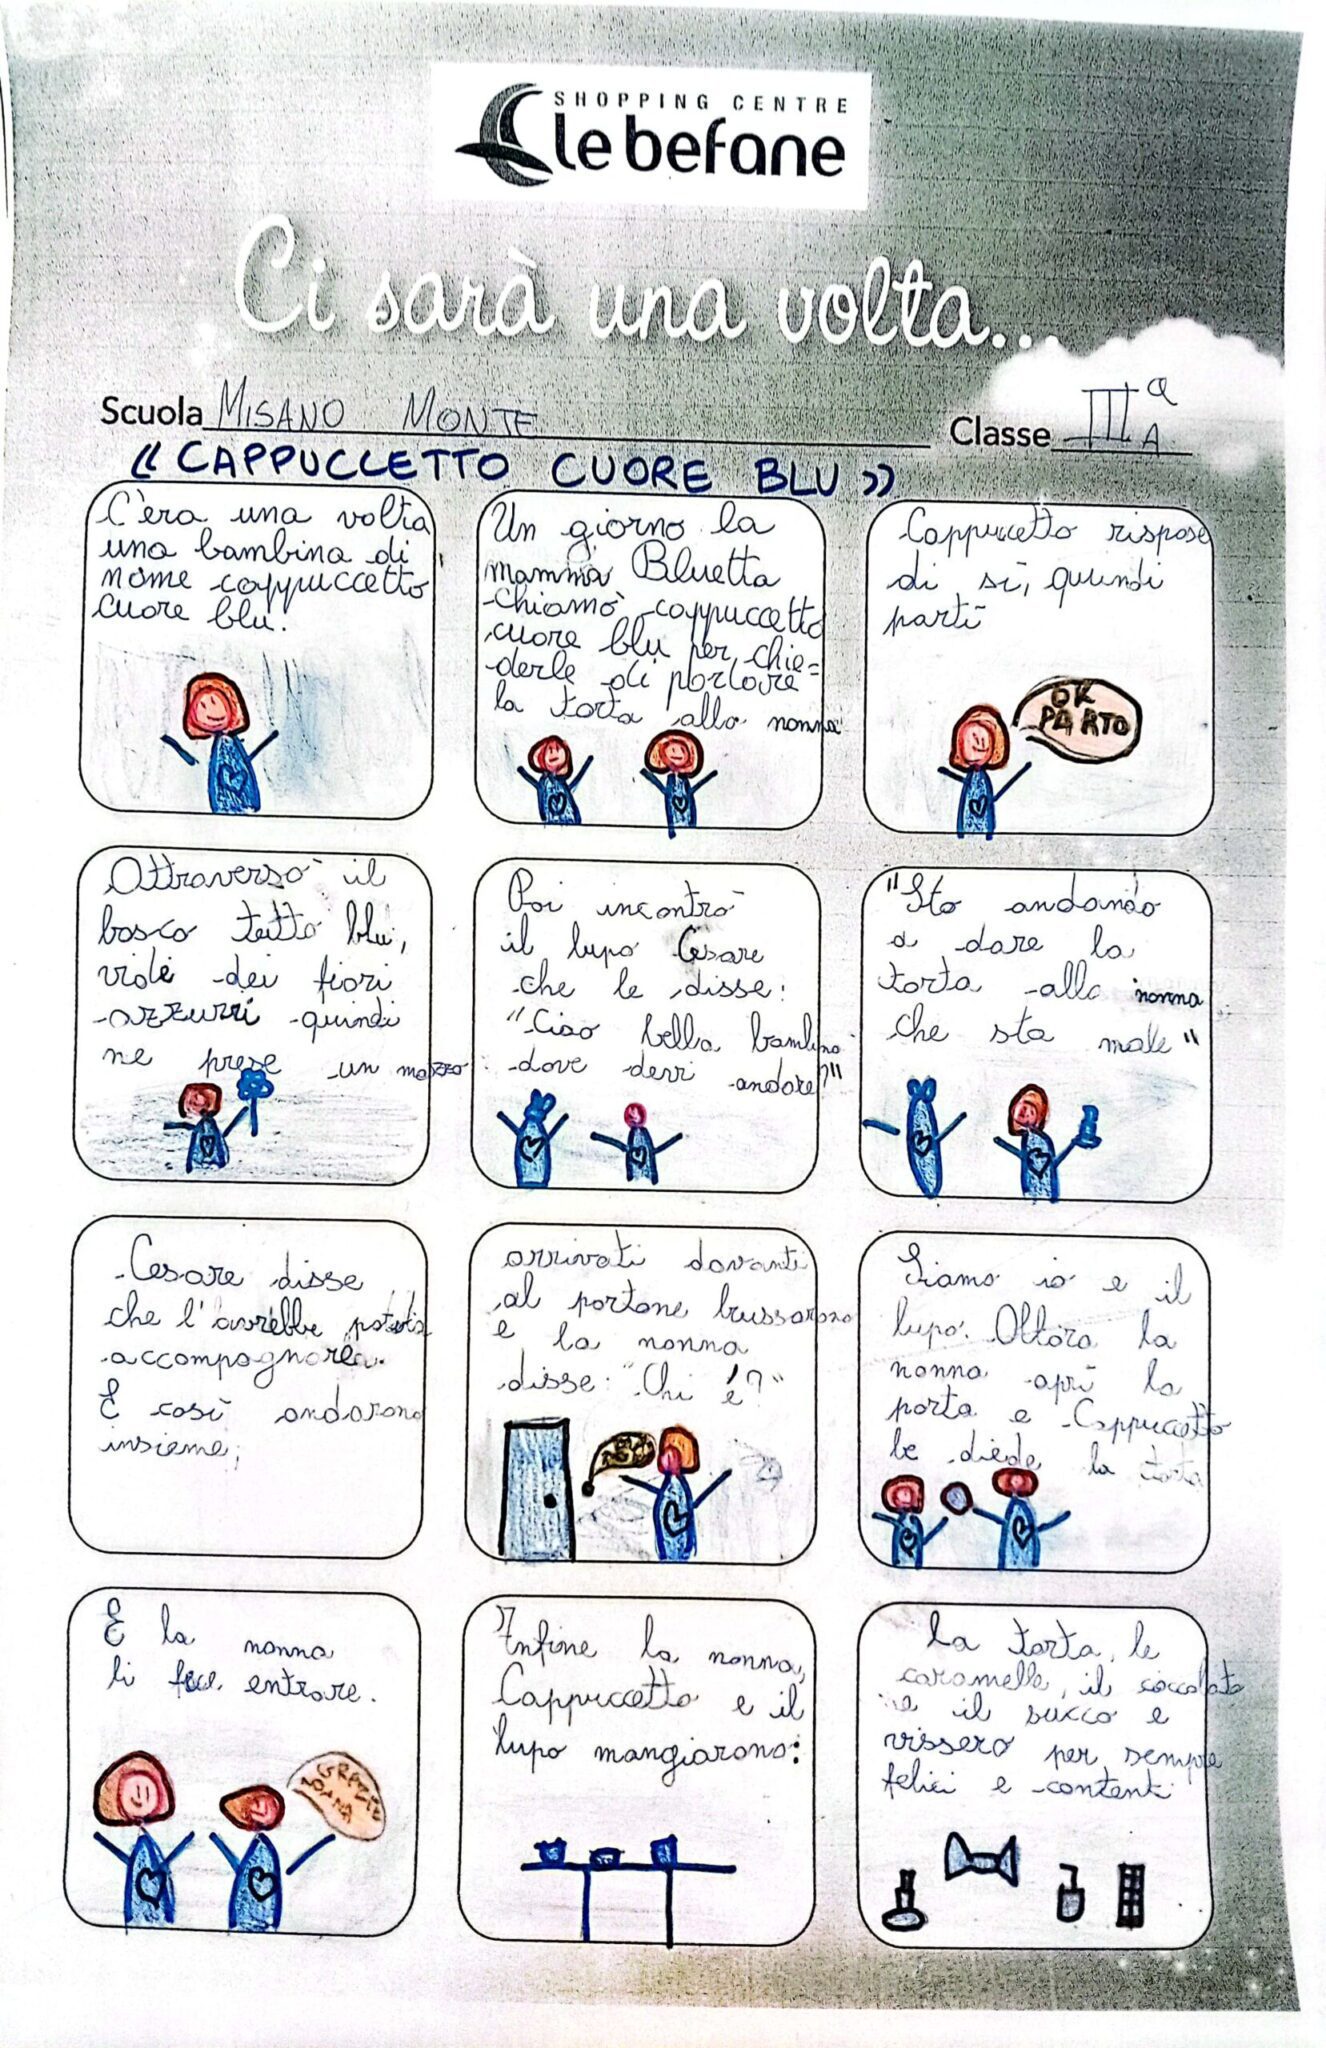 SHOPPING CENTRE
le befane
Ci sarà una volta...
Scuola MISANO MONTE
Classe IIIª A
« CAPPUCCETTO CUORE BLU »
C'era una volta
una bambina di
nome cappuccetto
cuore blu.
Un giorno la
mamma Bluetta
chiamò cappuccetto
cuore blu per chie=
derle di portare
la torta alla nonna
Cappuccetto rispose
di sì, quindi
partì
OK
PARTO
Attraversò il
bosco tutto blu,
vide dei fiori
azzurri quindi
ne prese un mazzo
Poi incontrò
il lupo Cesare
che le disse:
"Ciao bella bambina
dove devi andare?"
"Sto andando
a dare la
torta alla nonna
che sta male"
Cesare disse
che l'avrebbe potuta
accompagnare.
E così andarono
insieme;
arrivati davanti
al portone bussarono
e la nonna
disse: "Chi é?"
Siamo io e il
lupo. Allora la
nonna aprì la
porta e Cappuccetto
le diede la torta
E la nonna
li fece entrare.
Infine la nonna,
Cappuccetto e il
lupo mangiarono:
La torta, le
caramelle, il cioccolato
e il succo e
vissero per sempre
felici e contenti